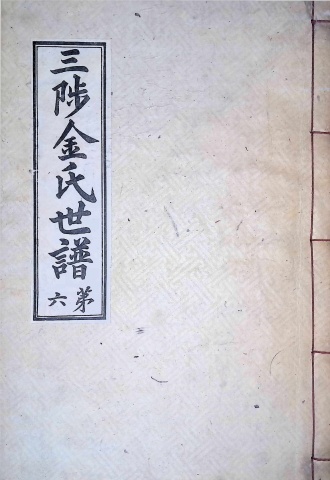 三陟金氏世譜
第六